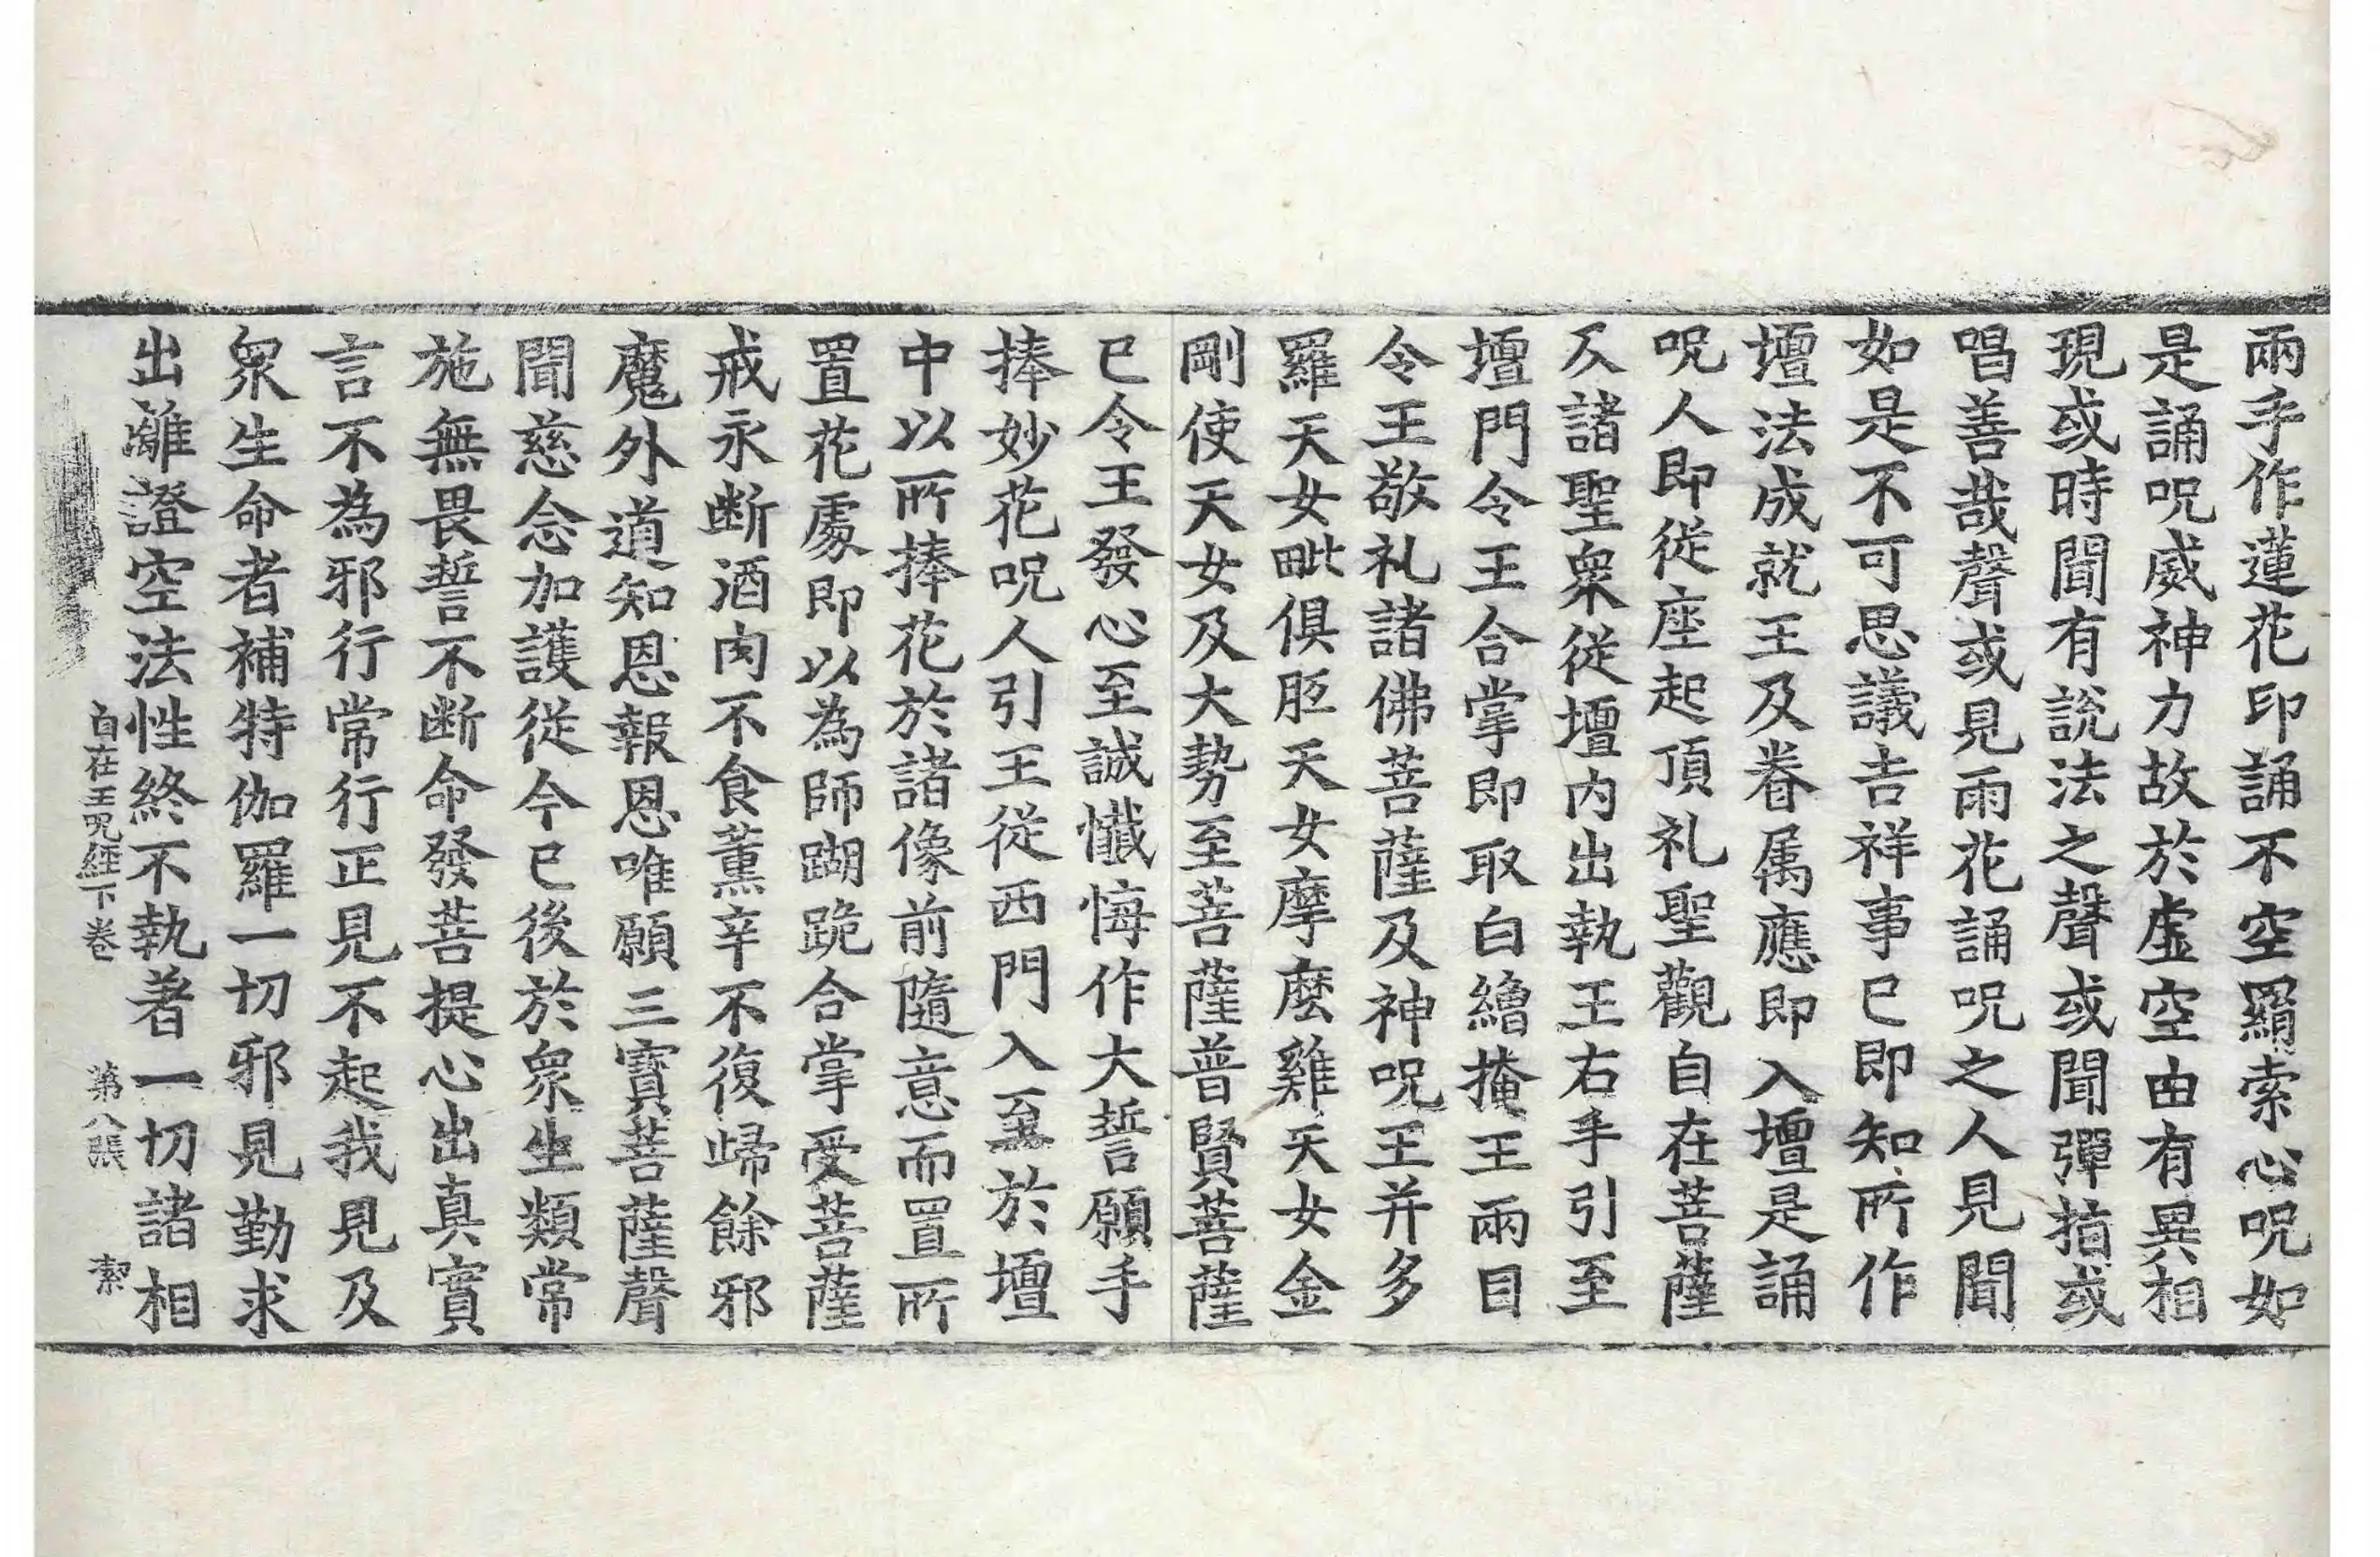 兩手作蓮花印誦不空羂索心呪如
是誦呪威神力故於虛空由有異相
現或時聞有說法之聲或聞彈指或
唱善哉聲或見雨花誦呪之人見聞
如是不可思議吉祥事已即知所作
壇法成就王及眷属應即入壇是誦
呪人即從座起頂礼聖觀自在菩薩
及諸聖衆從壇內出執王右手引至
壇門令王合掌即取白繒掩王兩目
令王敬礼諸佛菩薩及神呪王并多
羅天女毗俱胝天女摩麽雞天女金
剛使天女及大勢至菩薩普賢菩薩
已令王發心至誠懺悔作大誓願手
捧妙花呪人引王從西門入至於壇
中以所捧花於諸像前隨意而置所
置花處即以為師蹴跪合掌受菩薩
戒永断酒肉不食薰辛不復歸餘邪
魔外道知恩報恩唯願三寶菩薩聲
聞慈念加護從今已後於衆生類常
施無畏誓不断命發菩提心出真實
言不為邪行常行正見不起我見及
衆生命者補特伽羅一切邪見勤求
出離證空法性終不執著一切諸相
自在王呪經下卷 第八張 絜